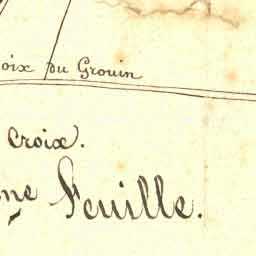 oix du Grouin
croix.
me Feuille.